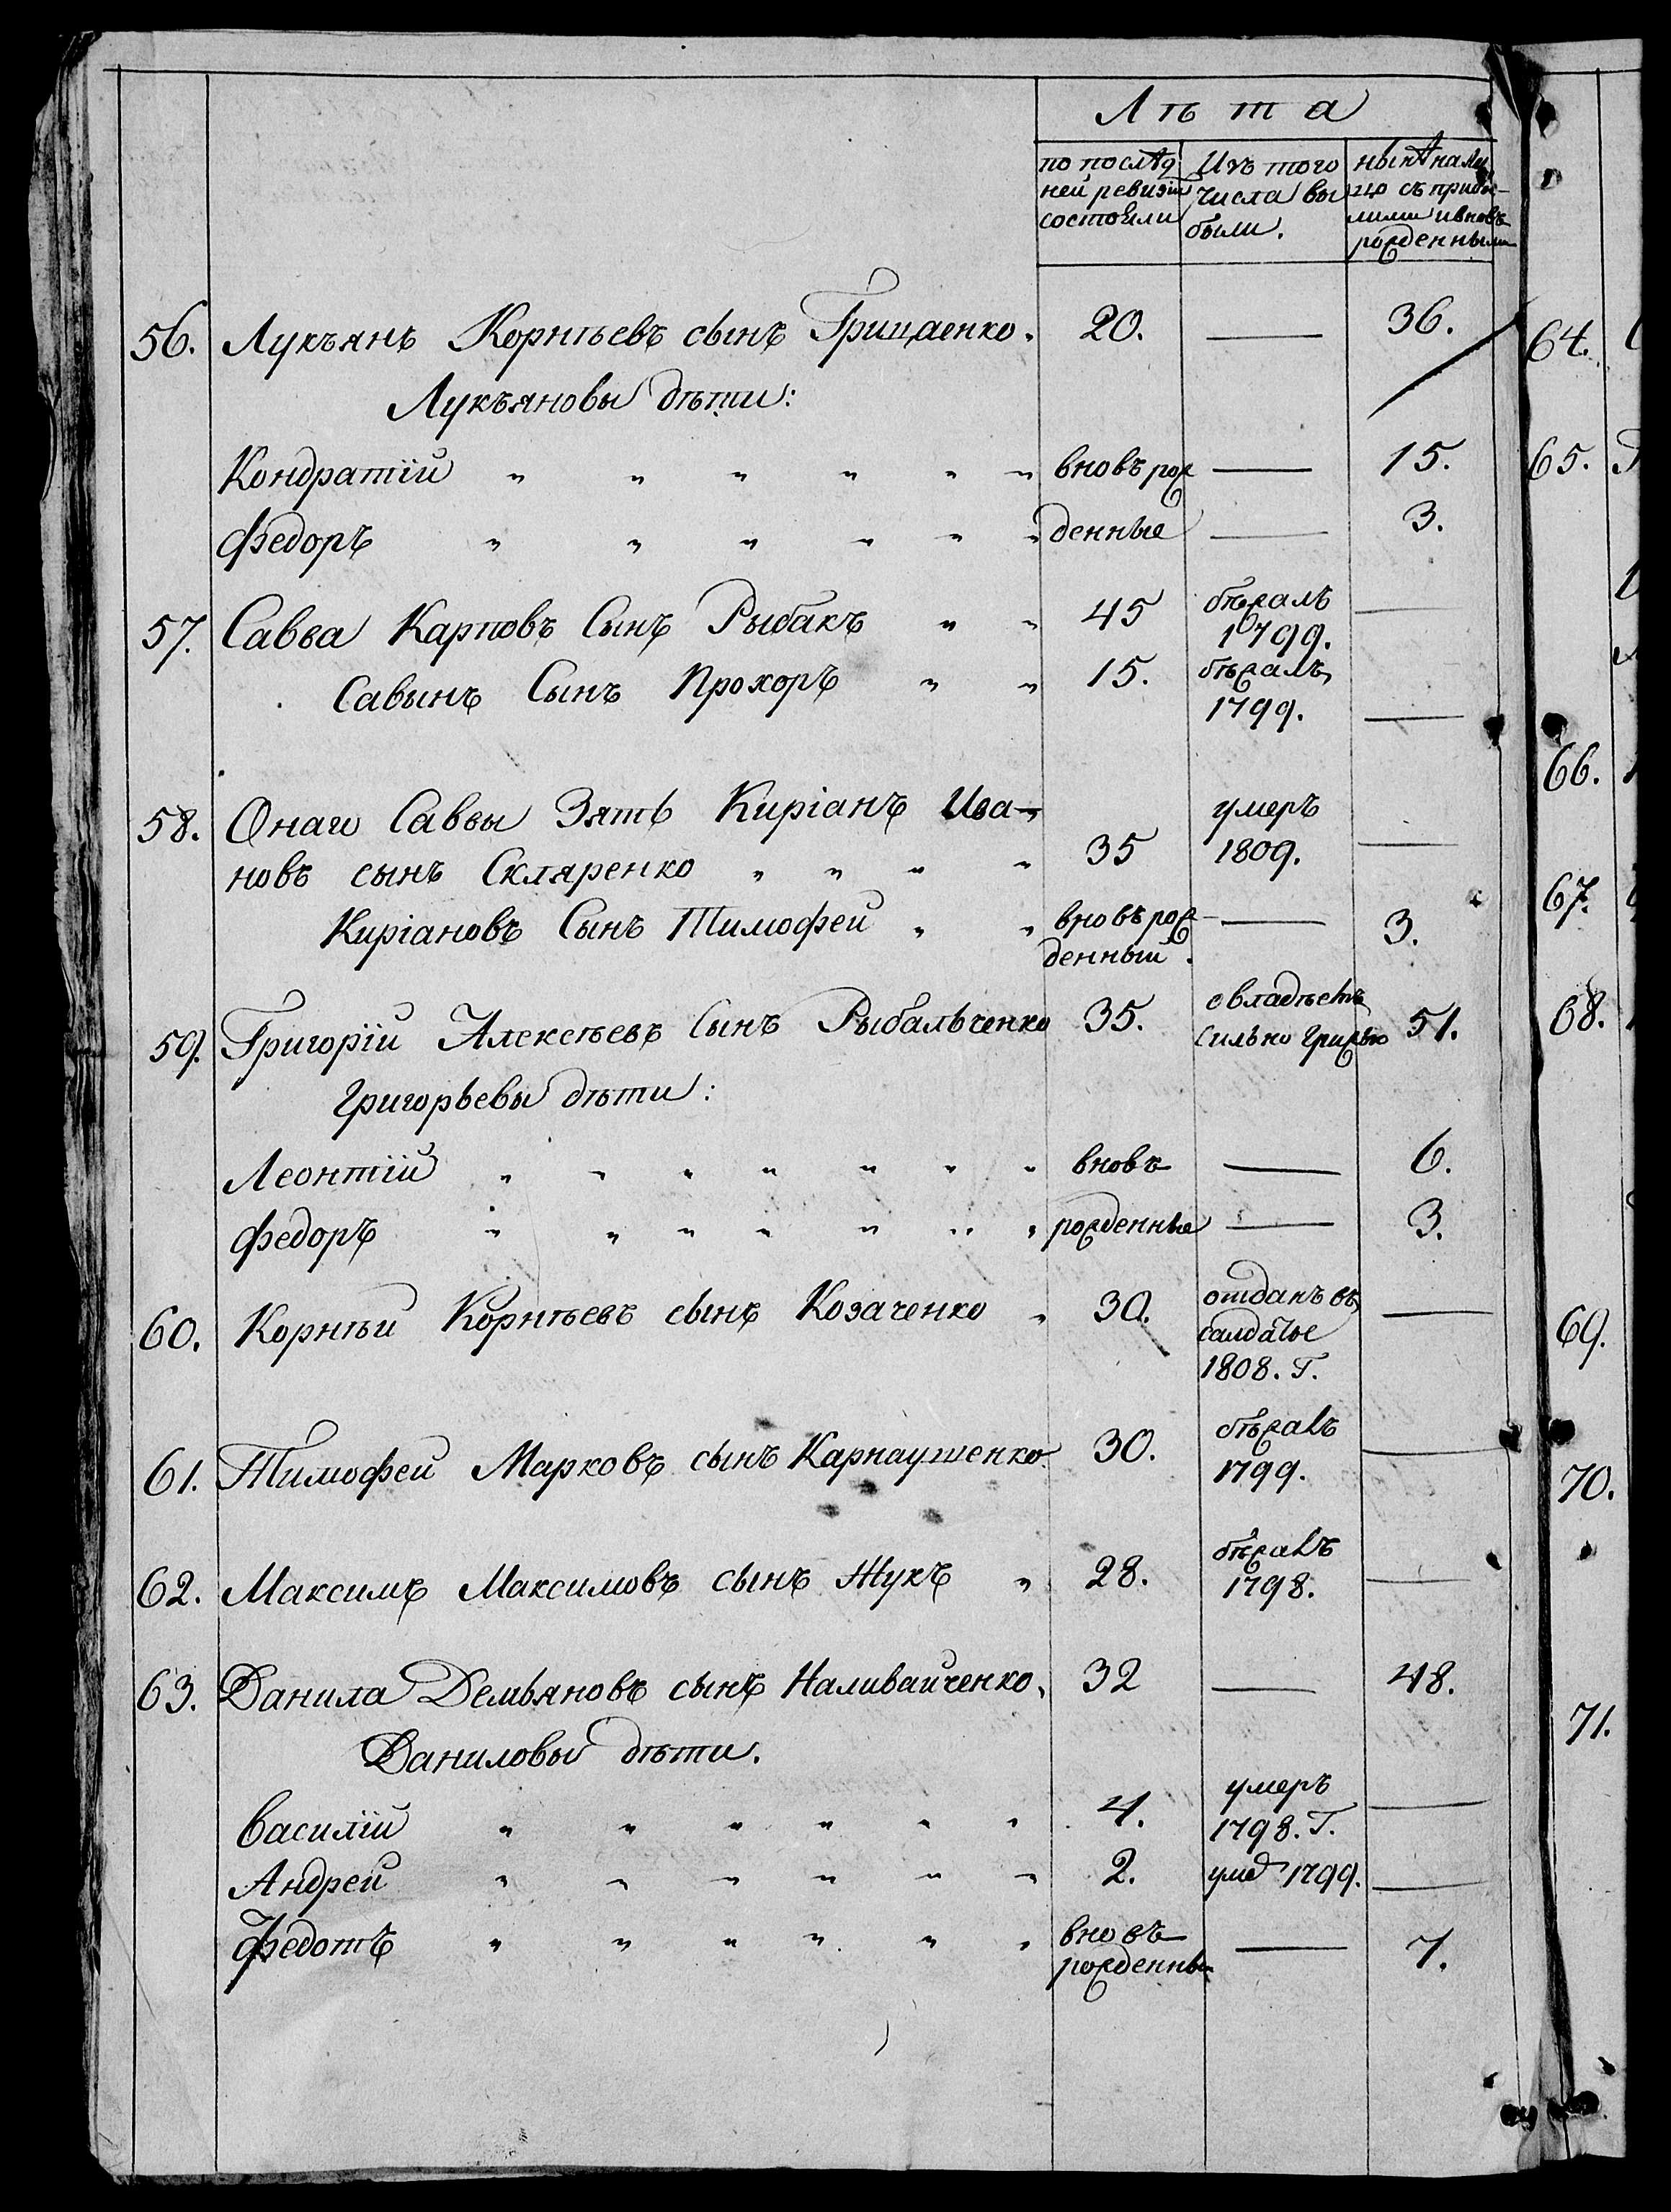 Лѣта
по послѣд Изъ того нынѣ на ли
ней ревизіи числа вы цо съ прибы-
состояли были. лыми и вновь
рожденными
56. Лукъянъ Корнѣевъ сынъ Грицаенко. 20. — 36.
Лукъяновы дѣти:
Кондратій " " " " " " вновъ рож — 15.
Федоръ " " " " " " денные — 3.
57. Савва Карповъ Сынъ Рыбакъ " " 45 бѣжалъ —
1799.
Савынъ Сынъ Прохоръ " " 15. бѣжалъ
1799. —
58. Онаго Саввы Зять Киріанъ Ива- умеръ
новъ сынъ Скляренко " " " " 35 1809. —
Киріановъ Сынъ Тимофей " " вновъ рож- — 3.
денный.
59. Григорій Алексѣевъ Сынъ Рыбальченко 35. 51.
сильно
Григорьевы дѣти:
Леонтій " " " " " " " вновъ — 6.
Федоръ " " " " " " " рожденные — 3.
60. Корнѣй Корнѣевъ сынъ Козаченко " 30. отданъ въ —
салдаты
1808. Г.
61. Тимофей Марковъ сынъ Карнаушенко 30. бѣжалъ —
1799.
62. Максимъ Максимовъ сынъ Жукъ " 28. бѣжалъ —
1798.
63. Данила Демьяновъ сынъ Наливайченко. 32 — 48.
Даниловы дѣти.
Василій " " " " " " 4. умеръ —
1798. Г.
Андрей " " " " " " 2. уме 1799. —
Федотъ " " " " " " вновъ — 7.
рожденный
64.
65.
66.
67.
68.
69.
70.
71.